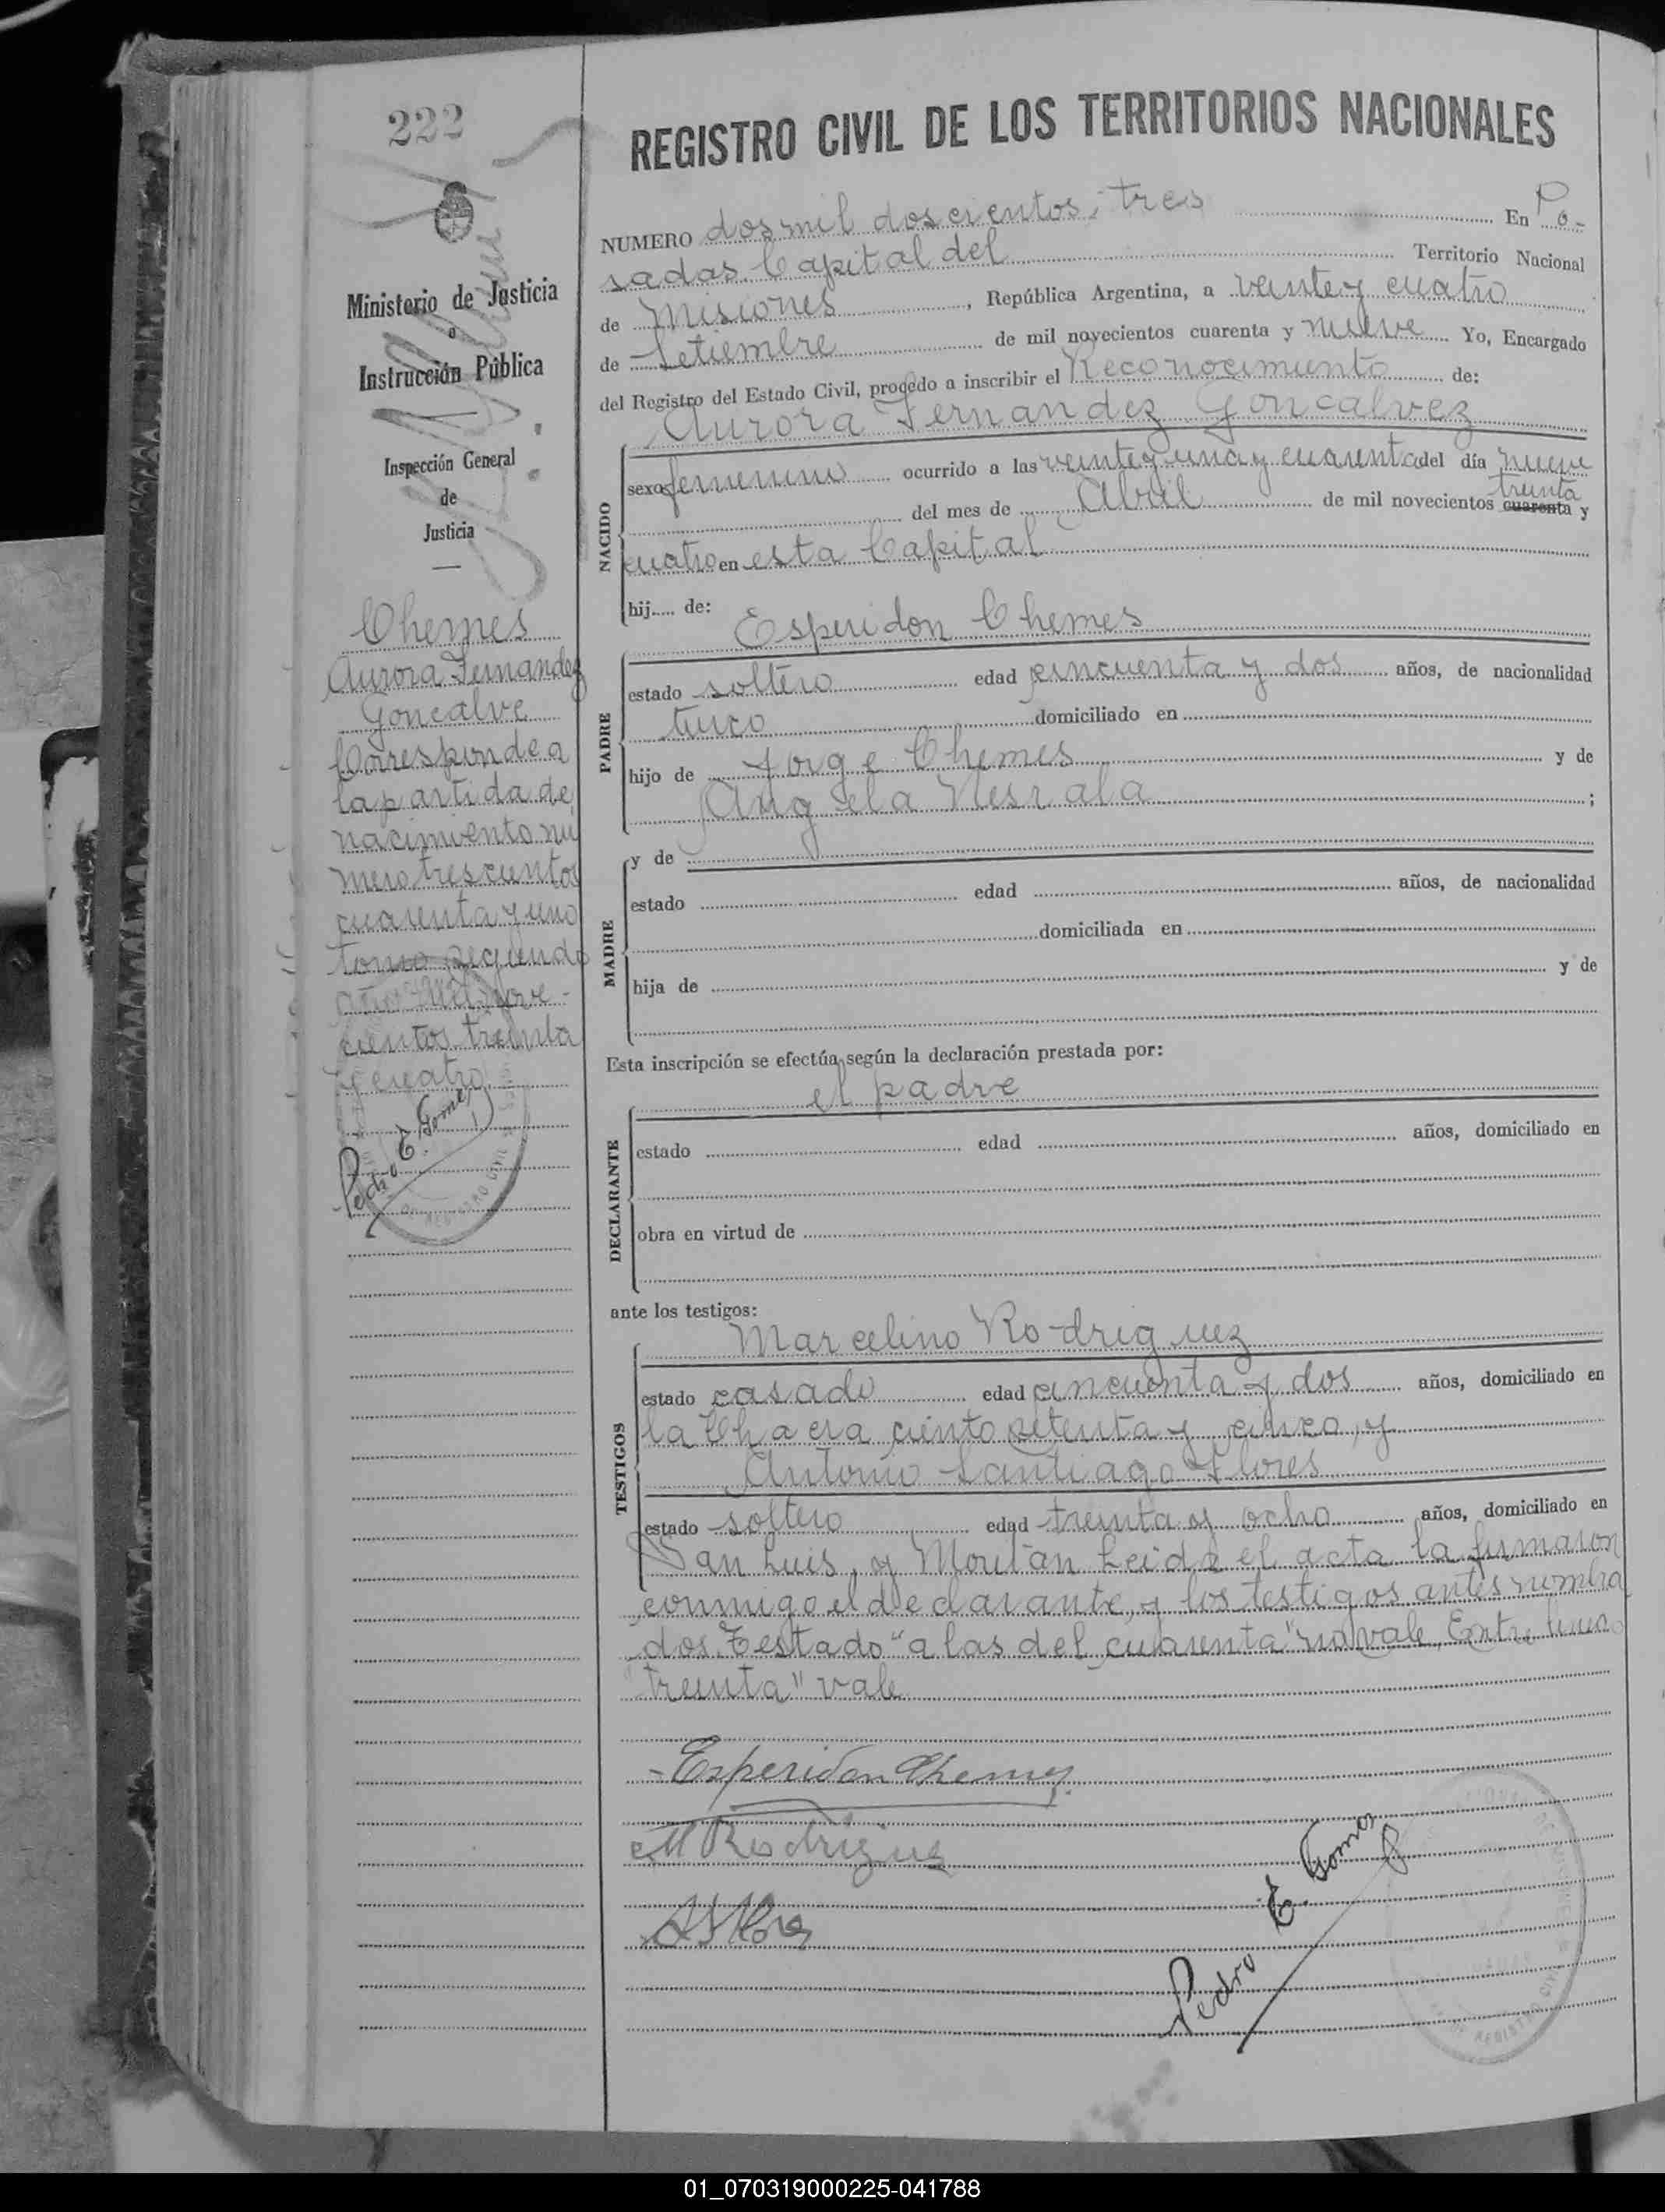 222
REGISTRO CIVIL DE LOS TERRITORIOS NACIONALES
NUMERO dos mil doscientos tres En Po-
sadas Capital del Territorio Nacional
de Misiones, República Argentina, a veinte y cuatro
de Setiembre de mil novecientos cuarenta y nueve Yo, Encargado
del Registro del Estado Civil, procedo a inscribir el Reconocimiento de:
Aurora Fernandez Goncalvez
NACIDO
sexo femenino ocurrido a las veinte y una y cuarenta del día nueve
treinta
del mes de Abril de mil novecientos cuarenta y
cuatro en esta Capital
hij..... de:
Esperidon Chemes
PADRE
estado soltero edad cincuenta y dos años, de nacionalidad
turco domiciliado en
hijo de Jorge Chemes y de
Angela Nesrala ;
MADRE
y de
estado edad años, de nacionalidad
domiciliada en
hija de y de
Esta inscripción se efectúa según la declaración prestada por:
el padre
DECLARANTE
estado edad años, domiciliado en
obra en virtud de
ante los testigos:
Marcelino Rodriguez
TESTIGOS
estado casado edad cincuenta y dos años, domiciliado en
la Chacra ciento setenta y cinco, y
Antonio Santiago Flores
estado soltero edad treinta y ocho años, domiciliado en
San Luis, y Moritan Leida el acta la firmaron
conmigo el declarante, y los testigos antes nombra
dos. Testado "a las del cuarenta" no vale. Entre linea
"treinta" vale
Esperidon Chemes
M Rodriguez
A S Flores
Pedro E. Gomez
Ministerio de Justicia
e
Instrucción Pública
Inspección General
de
Justicia
Chemes
Aurora Fernandez
Goncalve
Corresponde a
la partida de
nacimiento nú
mero trescientos
cuarenta y uno
tomo segundo
año mil nove-
cientos treinta
y cuatro
Pedro E. Gomez
01_070319000225-041788